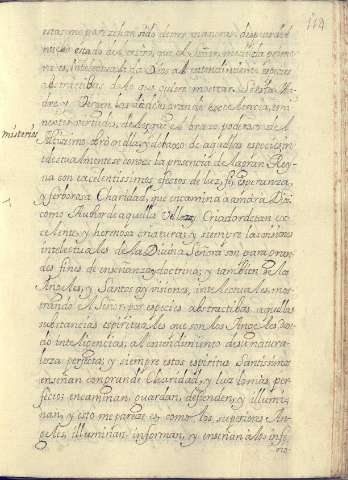 114
estas me par ze han sido de tres maneras, despues del
nuebo estado de retiro, que el Señor, me dio la primera
es, intelectual da Dios al entendimiento especies
abstractibas de lo que quiere mostrar
dre y Virgen las
nente virtudes, de las que el brazo poderoso del
misterios
Altisimo adornó la, y debaxo de aquellas especies in
telectualmente se conoze la presencia de la gran Rey
na con excelentissimos efectos de luz, fe, esperanza,
y ferborosa Charidad, que encamina a amar a Dios
como Author de aquella velleza, y Criador de tan ex
celente, y hermosa criatura; y siempre las visiones
intelectuales de la Divina Señora son para gran
des fines de enseñanza, y doctrina; y tambien de los
Angeles, y Santos ay visiones, intelectuales, mos
trando el Señor por especies abstractibas aquellas
substancias espirituales que son los Angeles dan
do inteligencias, al entendimiento de su natura
leza perfecta; y siempre estos espiritus Santissimos
enseñan con grande Charidad, y luz lo mas per
fecto encaminan, guardan, defienden, y illumi
nan, y esto me pareze es, como los superiores An
geles, illuminan, informan, y enseñan a los infe
rio-